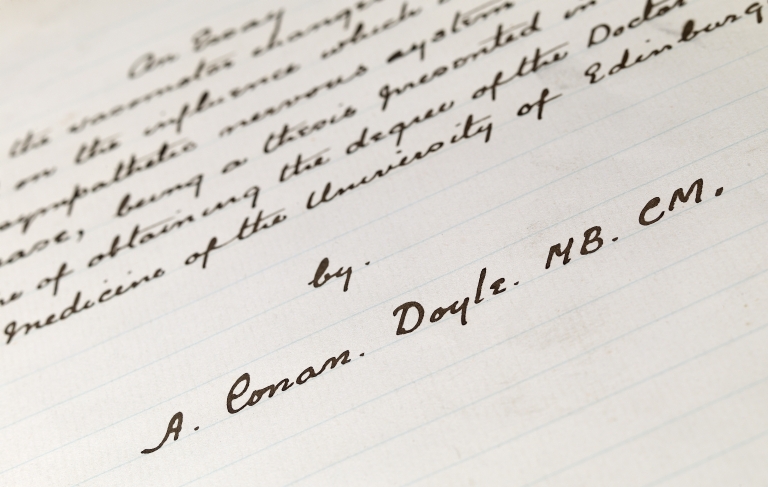 An Essay
the vasomotor changes
on the influence which
sympathetic nervous system
ease, being a thesis presented in
of obtaining the degree of the Doctor
medicine of the University of Edinburg
by.
A. Conan. Doyle. MB. CM.